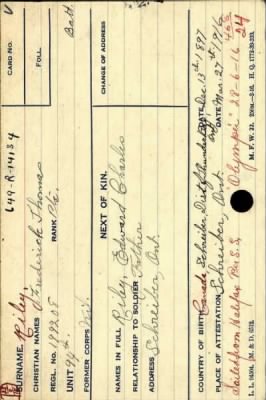 649-R-14134
CARD NO. V
FOLL.
SURNAME Riley,
CHRISTIAN NAMES Frederick Thomas
REGL. NO. 199205 RANK Pte.
UNIT 94th. Batt
FORMER CORPS Nil.
NEXT OF KIN.
CHANGE OF ADDRESS
NAMES IN FULL Riley, Edward Charles
RELATIONSHIP TO SOLDIER Father
ADDRESS Schreiber, Ont.
COUNTRY OF BIRTH Canada Schreiber, Dist of Thunder Bay, DATE Dec. 13th 1897
PLACE OF ATTESTATION Schreiber, Ont. DATE Mar. 27th 1916
Sailed from Halifax Per S.S. "Olympic" 28-6-16
24
M. F. W. 22.
H. Q. 1772-39-339.